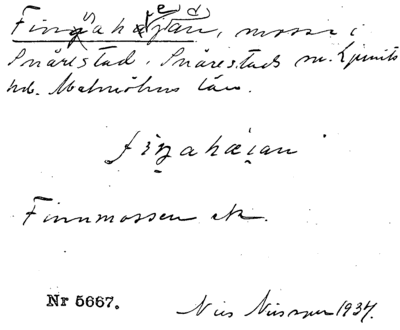 Finnahejdan, mosse i
Snårestad. Snårestads sn. Ljunits
hd. Malmöhus län.
fiŋahæi̯an
Finnmossen ek.
Nr 5667.
Nils Nilsson 1934.